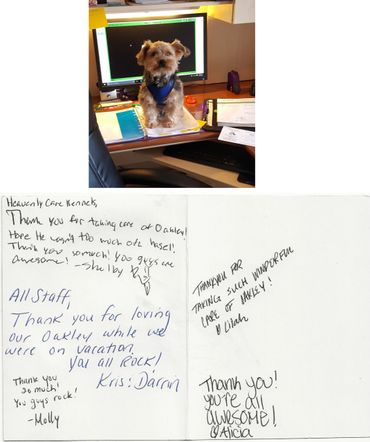 Heavenly Care Kennels,
Thank you for taking care of Oakley!
Hope he wasn't too much of a hassel!
Thank you so much! You guys are
awesome! -Shelby
All Staff,
Thank you for loving
our Oakley while we
were on vacation.
You all ROCK!
Kris: Darrin
Thank you
so much!
You guys rock!
-Molly
THANKYOU FOR
TAKING SUCH WONDERFUL
CARE OF OAKLEY!
Thank you!
you're all
awesome!
Alicia